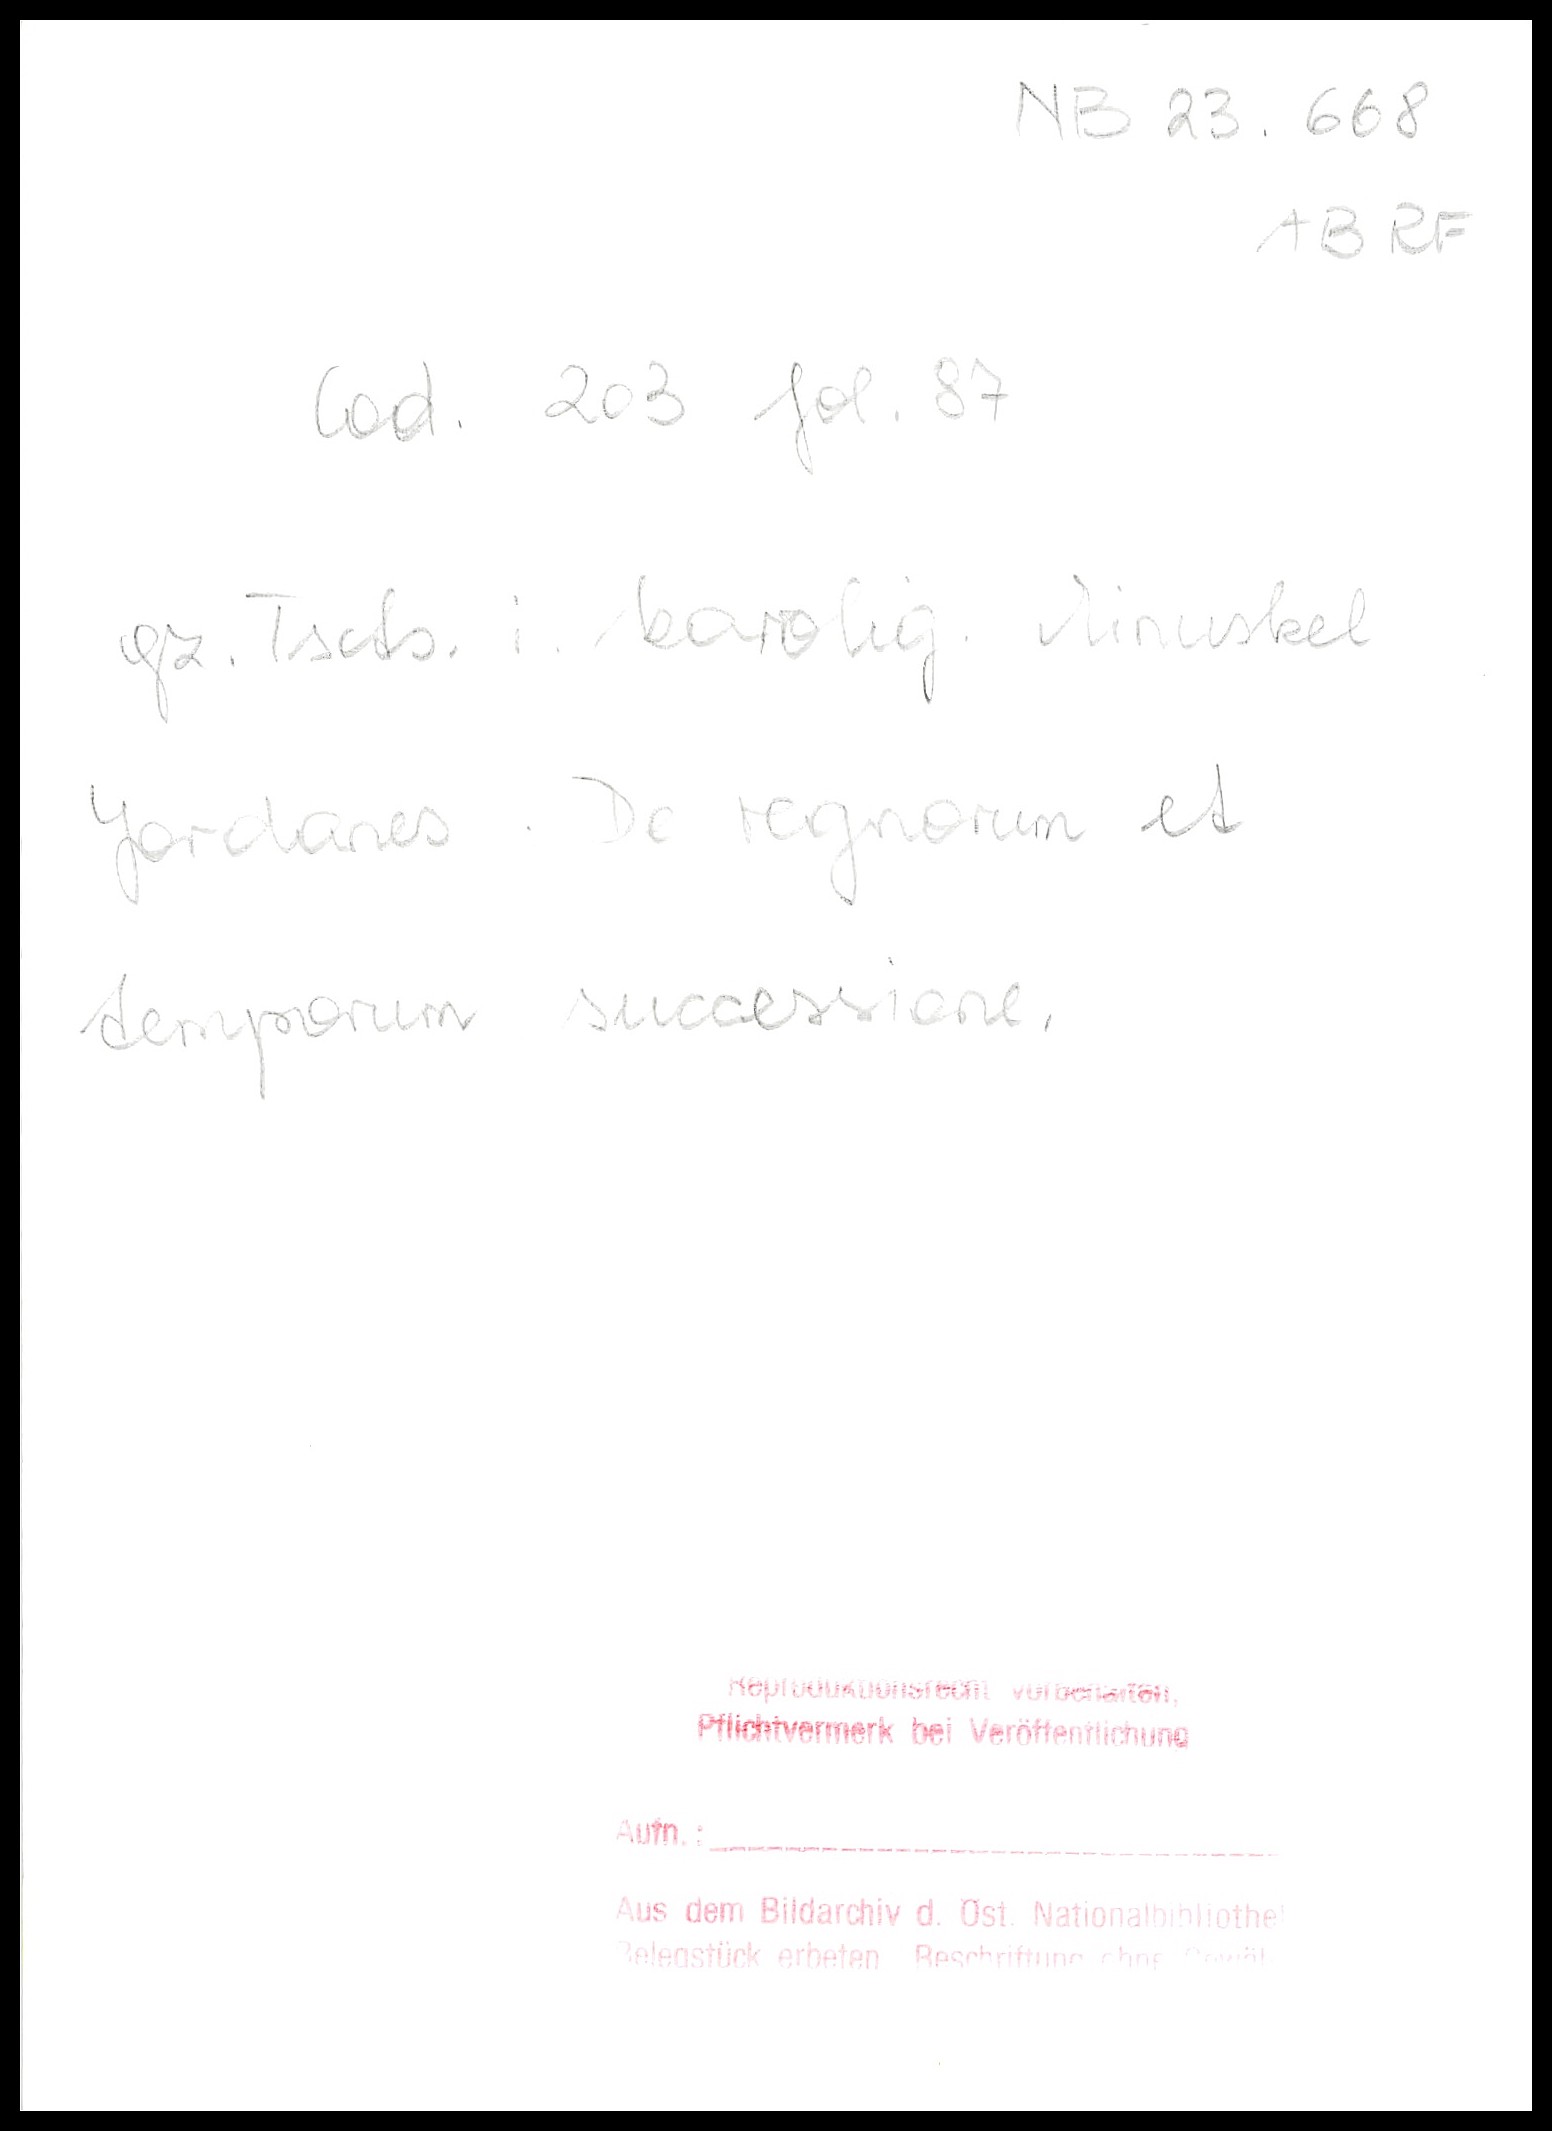 NB 23.668
AB RF
Cod. 203 fol. 87
gz. Tscb. i. karolig. Minuskel
Jordanes. De regnorum et
temporum successione.
Reproduktionsrecht vorbehalten,
Pflichtvermerk bei Veröffentlichung
Aufn.:
Aus dem Bildarchiv d. Öst. Nationalbibliothe
Belegstück erbeten Beschriftung ohne